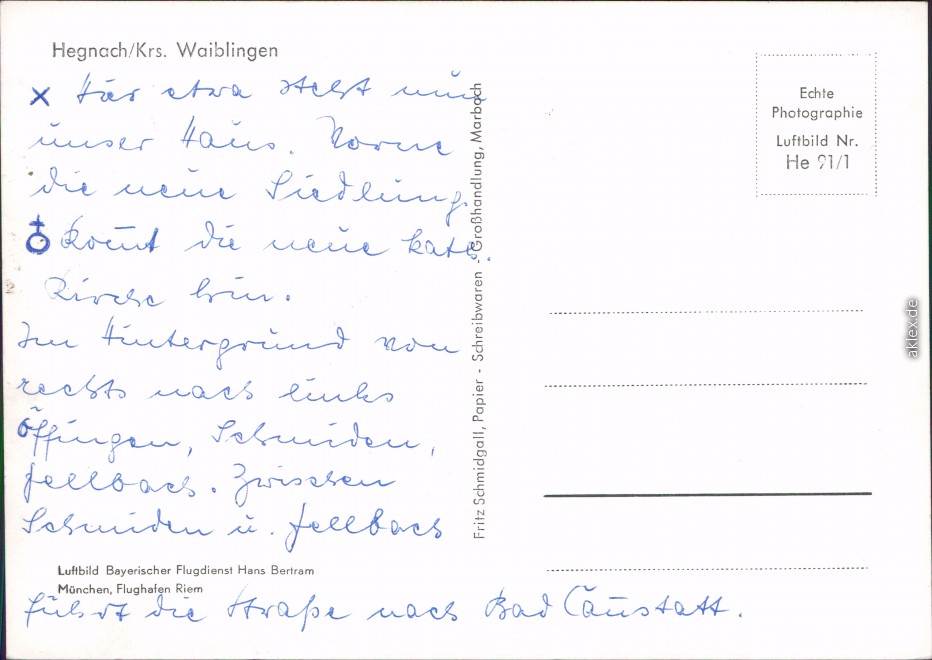 Hegnach/Krs. Waiblingen
x Hier etwa steht nun
unser Haus. Vorne
die neue Siedlung.
♁ kommt die neue kath.
Kirche hin.
Im Hintergrund von
rechts nach links
Öffingen, Schmiden,
Fellbach. Zwischen
Schmiden u. Fellbach
Luftbild Bayerischer Flugdienst Hans Bertram
München, Flughafen Riem
führt die Straße nach Bad Cannstatt.
Fritz Schmidgall, Papier - Schreibwaren - Großhandlung, Marbach
Echte
Photographie
Luftbild Nr.
He 91/1
aklex.de